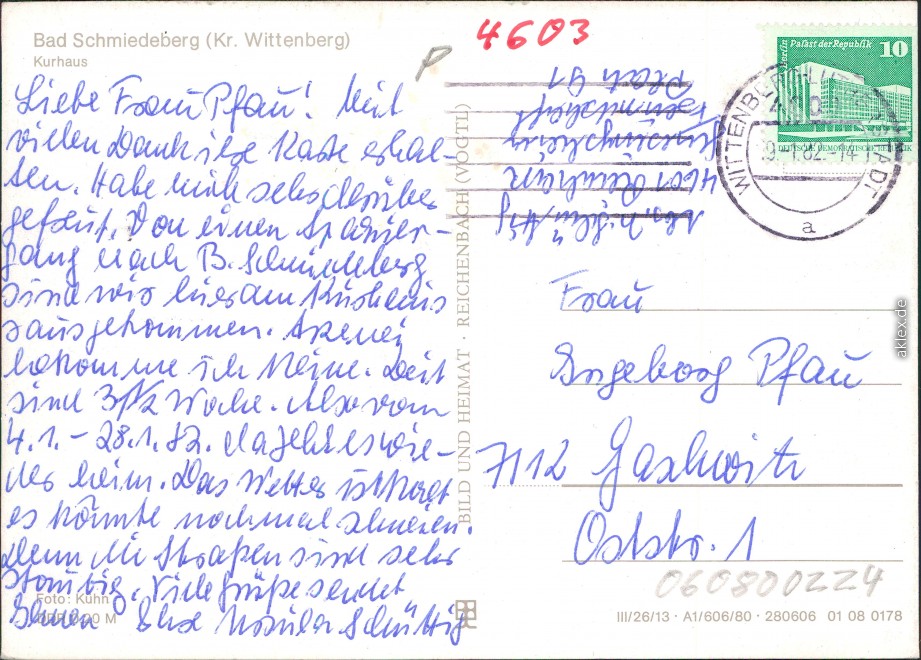 Bad Schmiedeberg (Kr. Wittenberg)
Kurhaus
P
4603
Liebe Frau Pfau! Mit
vielen Dank ihre Karte erhal-
ten. Habe mich sehr darüber
gefreut. Von einen Spazier-
gang nach B. Schmiedeberg
sind wir hier am Kurhaus
rausgekommen. Arzenei
bekomme ich keine. Zeit
sind 3 1/2 Woche. Also vom
4.1. - 28.1.82. da geht es wie-
der heim. Das Wetter ist kalt
es könnte nochmal schneien.
Denn die Straßen sind sehr
staubig. Viele Grüße sendet
Ihnen Ursula Schüttig
Foto: Kuhn
M
BILD UND HEIMAT · REICHENBACH (VOGTL)
Abs.
4601
Platz 91
Berlin Palast der Republik 10
DEUTSCHE DEMOKRATISCHE REPUBLIK
WITTENBERG LUTHERSTADT
82.-14
a
Frau
Ingeborg Pfau
7112 Gaschwitz
Oststr. 1
060800224
III/26/13 · A1/606/80 · 280606 01 08 0178
aklex.de